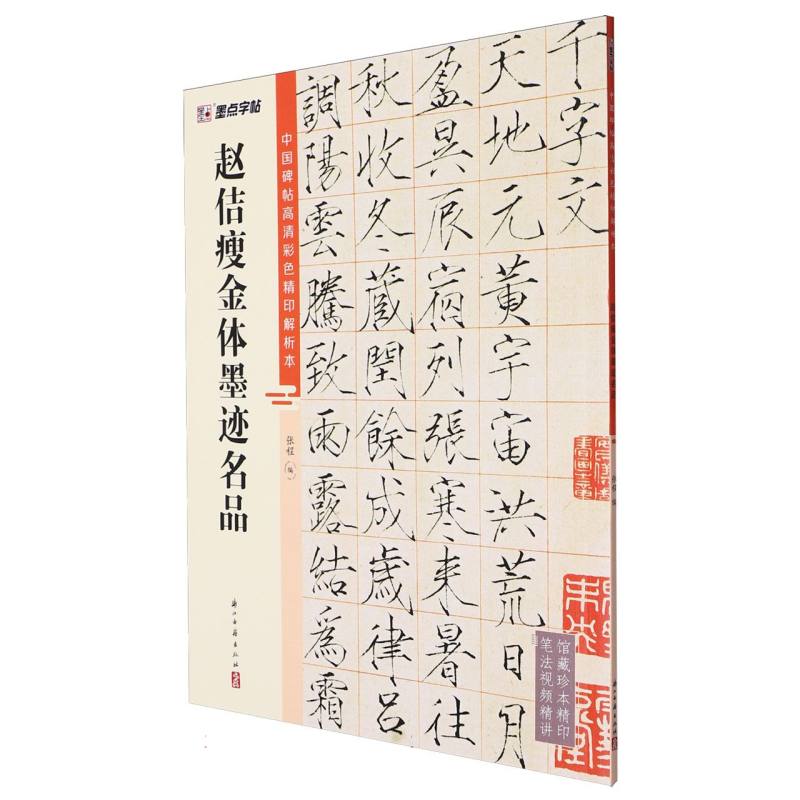 墨点字帖
赵佶瘦金体墨迹名品
浙江古籍出版社
中国碑帖高清彩色精印解析本
张程 编
千字文
天地元黃宇宙洪荒日月
盈昃辰宿列張寒来暑往
秋收冬蔵閏餘成歲律呂
調陽雲騰致雨露結爲霜
馆藏珍本精印
笔法视频精讲